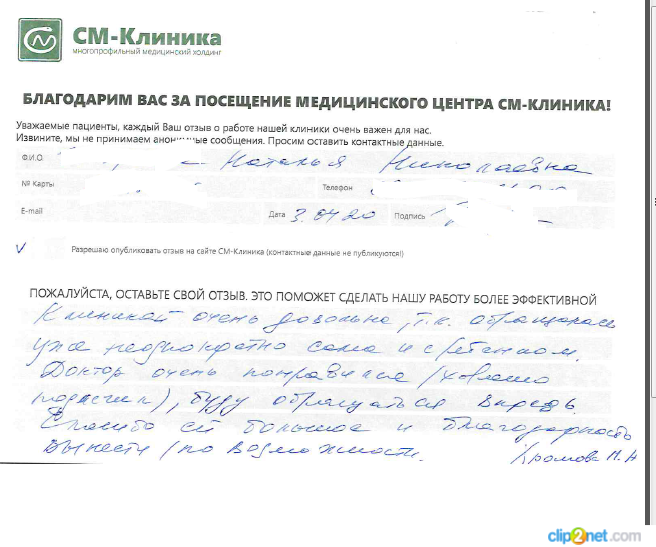 СМ-Клиника
многопрофильный медицинский холдинг
БЛАГОДАРИМ ВАС ЗА ПОСЕЩЕНИЕ МЕДИЦИНСКОГО ЦЕНТРА СМ-КЛИНИКА!
Уважаемые пациенты, каждый Ваш отзыв о работе нашей клиники очень важен для нас.
Извините, мы не принимаем анонимные сообщения. Просим оставить контактные данные.
Ф.И.О. Наталья Николаевна
№ Карты Телефон
E-mail Дата 3.04.20 Подпись
V Разрешаю опубликовать отзыв на сайте СМ-Клиника (контактные данные не публикуются!)
ПОЖАЛУЙСТА, ОСТАВЬТЕ СВОЙ ОТЗЫВ. ЭТО ПОМОЖЕТ СДЕЛАТЬ НАШУ РАБОТУ БОЛЕЕ ЭФФЕКТИВНОЙ
Клиникой очень довольна, т.к. обращалась
уже неоднократно сама и с ребенком.
Доктор очень понравился (хорошо
), буду обращаться впредь.
Спасибо ей большое и благодарность
вынести (по возможности. Громова Н.Н
clip2net.com